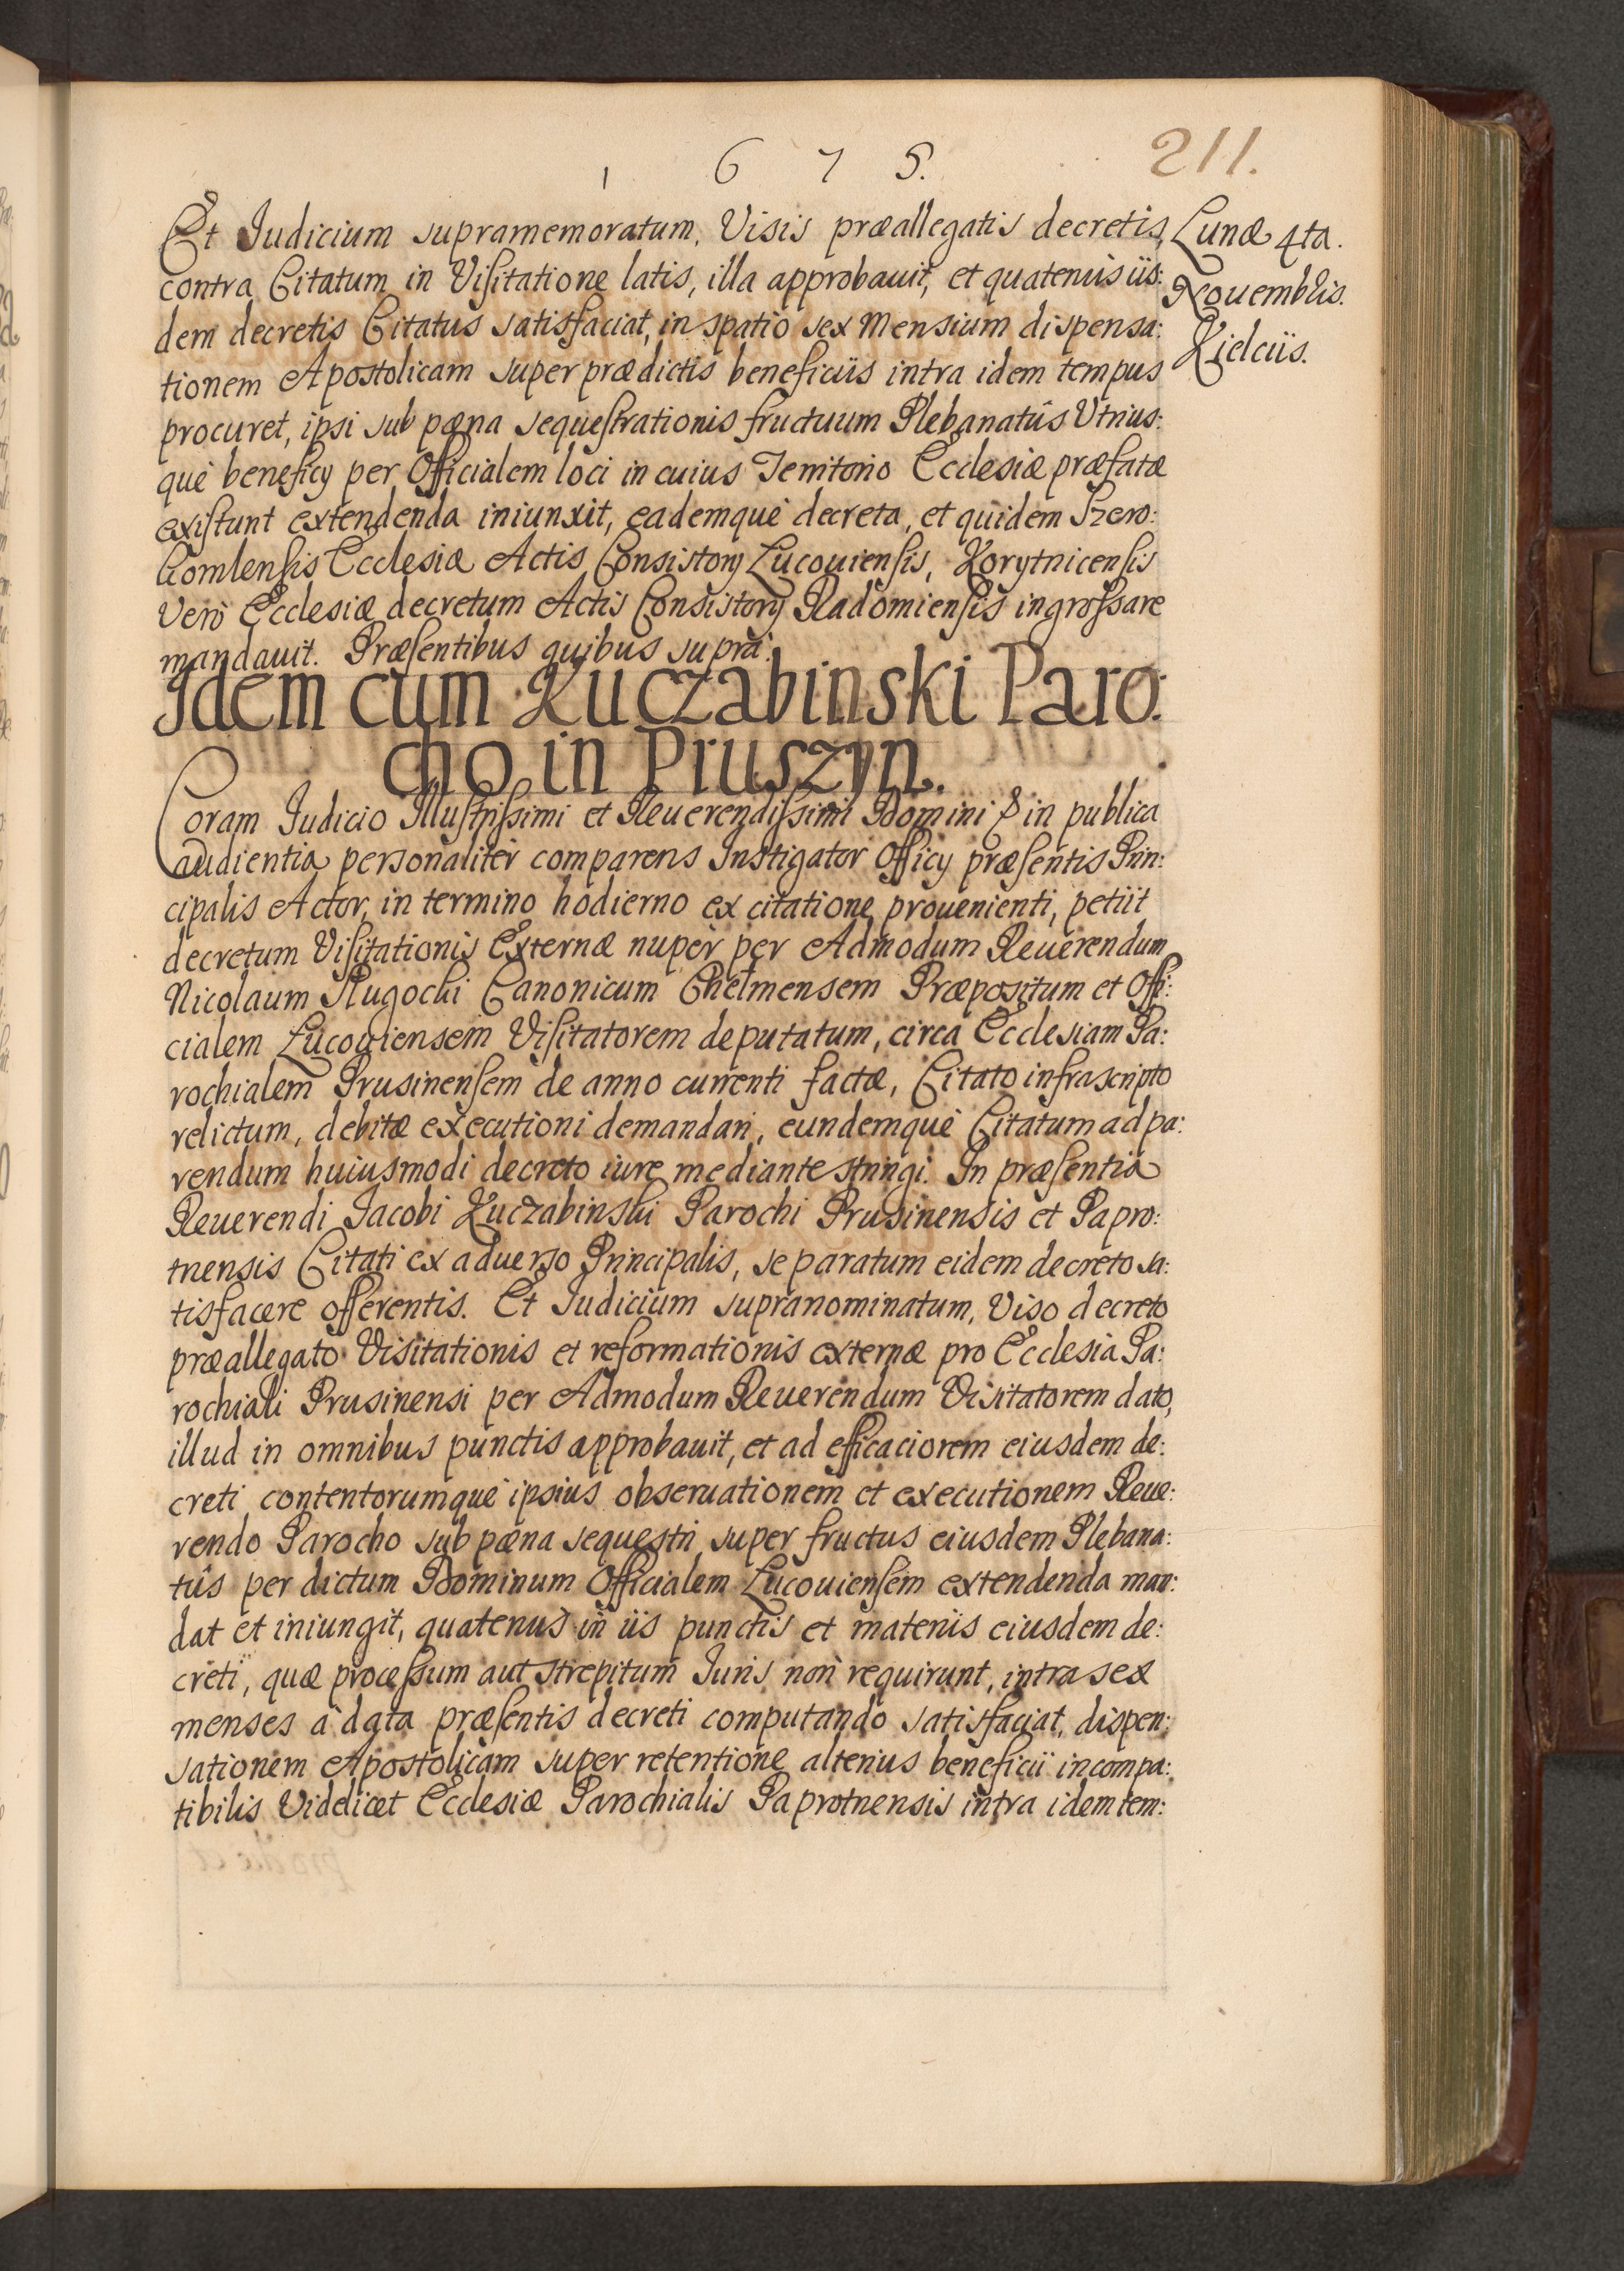 1 6 7 5.
211.
Et Judicium supramemoratum, Visis præallegatis decretis,
contra Citatum in Visitatione latis, illa approbauit, et quatenùs iis:
dem decretis Citatus satisfaciat, in spatio sex Mensium dispensa:
tionem Apostolicam super prædictis beneficiis intra idem tempus
procuret, ipsi sub pœna sequestrationis fructuum Plebanatûs Utrius:
què beneficy per Officialem loci in cuius Territorio Ecclesiæ præfatæ
existunt extendenda iniunxit, eademquè decreta, et quidem Szero:
komlensis Ecclesiæ Actis Consistory Lucouiensis, Korytnicensis
Verò Ecclesiæ decretum Actis Consistory Radomiensis ingrossare
mandauit. Præsentibus quibus suprà.
Lunæ 4ta.
Nouembris.
Kielciis.
Idem cum Kuczabinski Paro:
cho in Pruszyn.
Coram Judicio Illustrissimi et Reuerendissimi Domini & in publica
audientia personalitèr comparens Instigator Officy præsentis Prin:
cipalis Actor, in termino hodierno ex citatione prouenienti, petiit
decretum Visitationis Externæ nupèr per Admodum Reuerendum
Nicolaum Dlugocki Canonicum Chelmensem Præpositum et Offi:
cialem Lucouiensem Visitatorem deputatum, circa Ecclesiam Pa:
rochialem Prusinensem de anno currenti factæ, Citato infrascripto
relictum, debitæ executioni demandari, eundemquè Citatum ad pa:
rendum huiusmodi decreto iure mediante stringi. In præsentia
Reuerendi Jacobi Kuczabinski Parochi Prusinensis et Papro:
tnensis Citati ex aduerso Principalis, se paratum eidem decreto sa:
tisfacere offerentis. Et Judicium supranominatum, Viso decreto
præallegato Visitationis et reformationis externæ pro Ecclesia Pa:
rochiali Prusinensi per Admodum Reuerendum Visitatorem dato,
illud in omnibus punctis approbauit, et ad efficaciorem eiusdem de:
creti contentorumquè ipsius obseruationem et executionem Reue:
rendo Parocho sub pœna sequestri super fructus eiusdem Plebana:
tûs per dictum Dominum Officialem Lucouiensem extendenda man:
dat et iniungit, quatenus in iis punctis et materiis eiusdem de:
creti, quæ processum aut strepitum Juris non requirunt, intra sex
menses à data præsentis decreti computando satisfaciat, dispen:
sationem Apostolicam super retentione alterius beneficii incompa:
tibilis Videlicet Ecclesiæ Parochialis Paprotnensis intra idem tem: